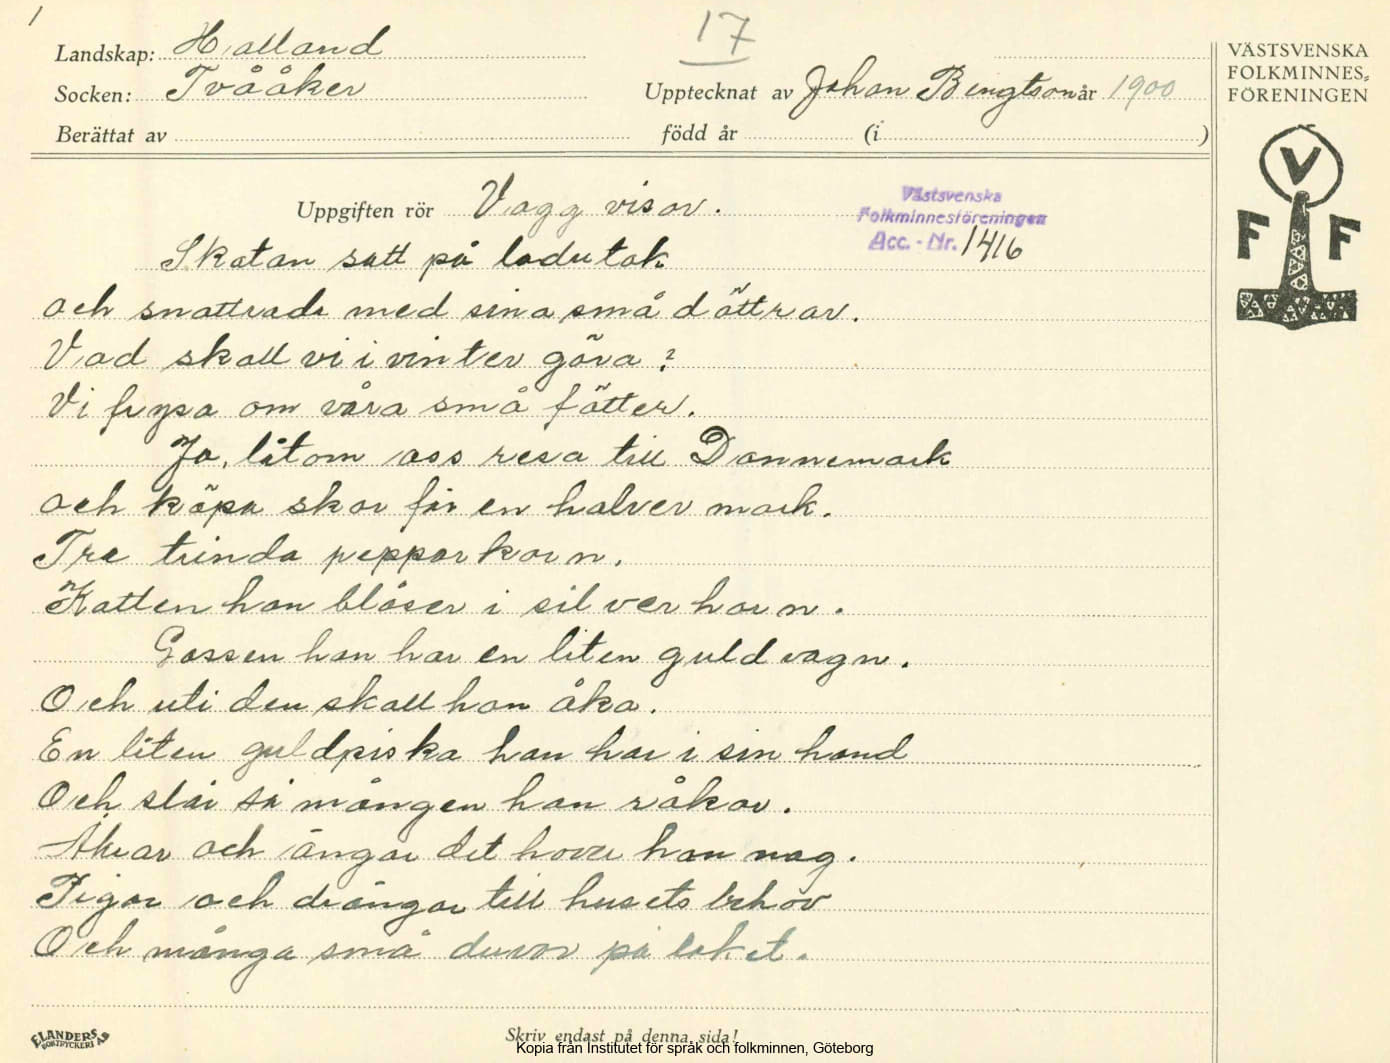 1
17
Landskap: Halland
Socken: Tvååker
Upptecknat av Johan Bengtson år 1900
Berättat av
född år (i )
VÄSTSVENSKA
FOLKMINNES-
FÖRENINGEN
V
F F
Uppgiften rör Vaggvisor.
Västsvenska
Folkminnesföreningen
Acc. - Nr. 1416
Skatan satt på ladutak
och snattrade med sina små döttrar.
Vad skall vi i vinter göra?
Vi frysa om våra små fötter.
Ja, låtom oss resa till Dannemark
och köpa skor för en halver mark.
Tre trinda pepparkorn.
Katten han blåser i silverhorn.
Gossen han har en liten guldvagn.
Och uti den skall han åka.
En liten guldpiska han har i sin hand
Och slår så mången han råkar.
Åkrar och ängar det haver han nog.
Pigor och drängar till husets behov
Och många små duvor på taket.
ELANDERS
BOKTRYCKERI AB
Skriv endast på denna sida!
Kopia från Institutet för språk och folkminnen, Göteborg